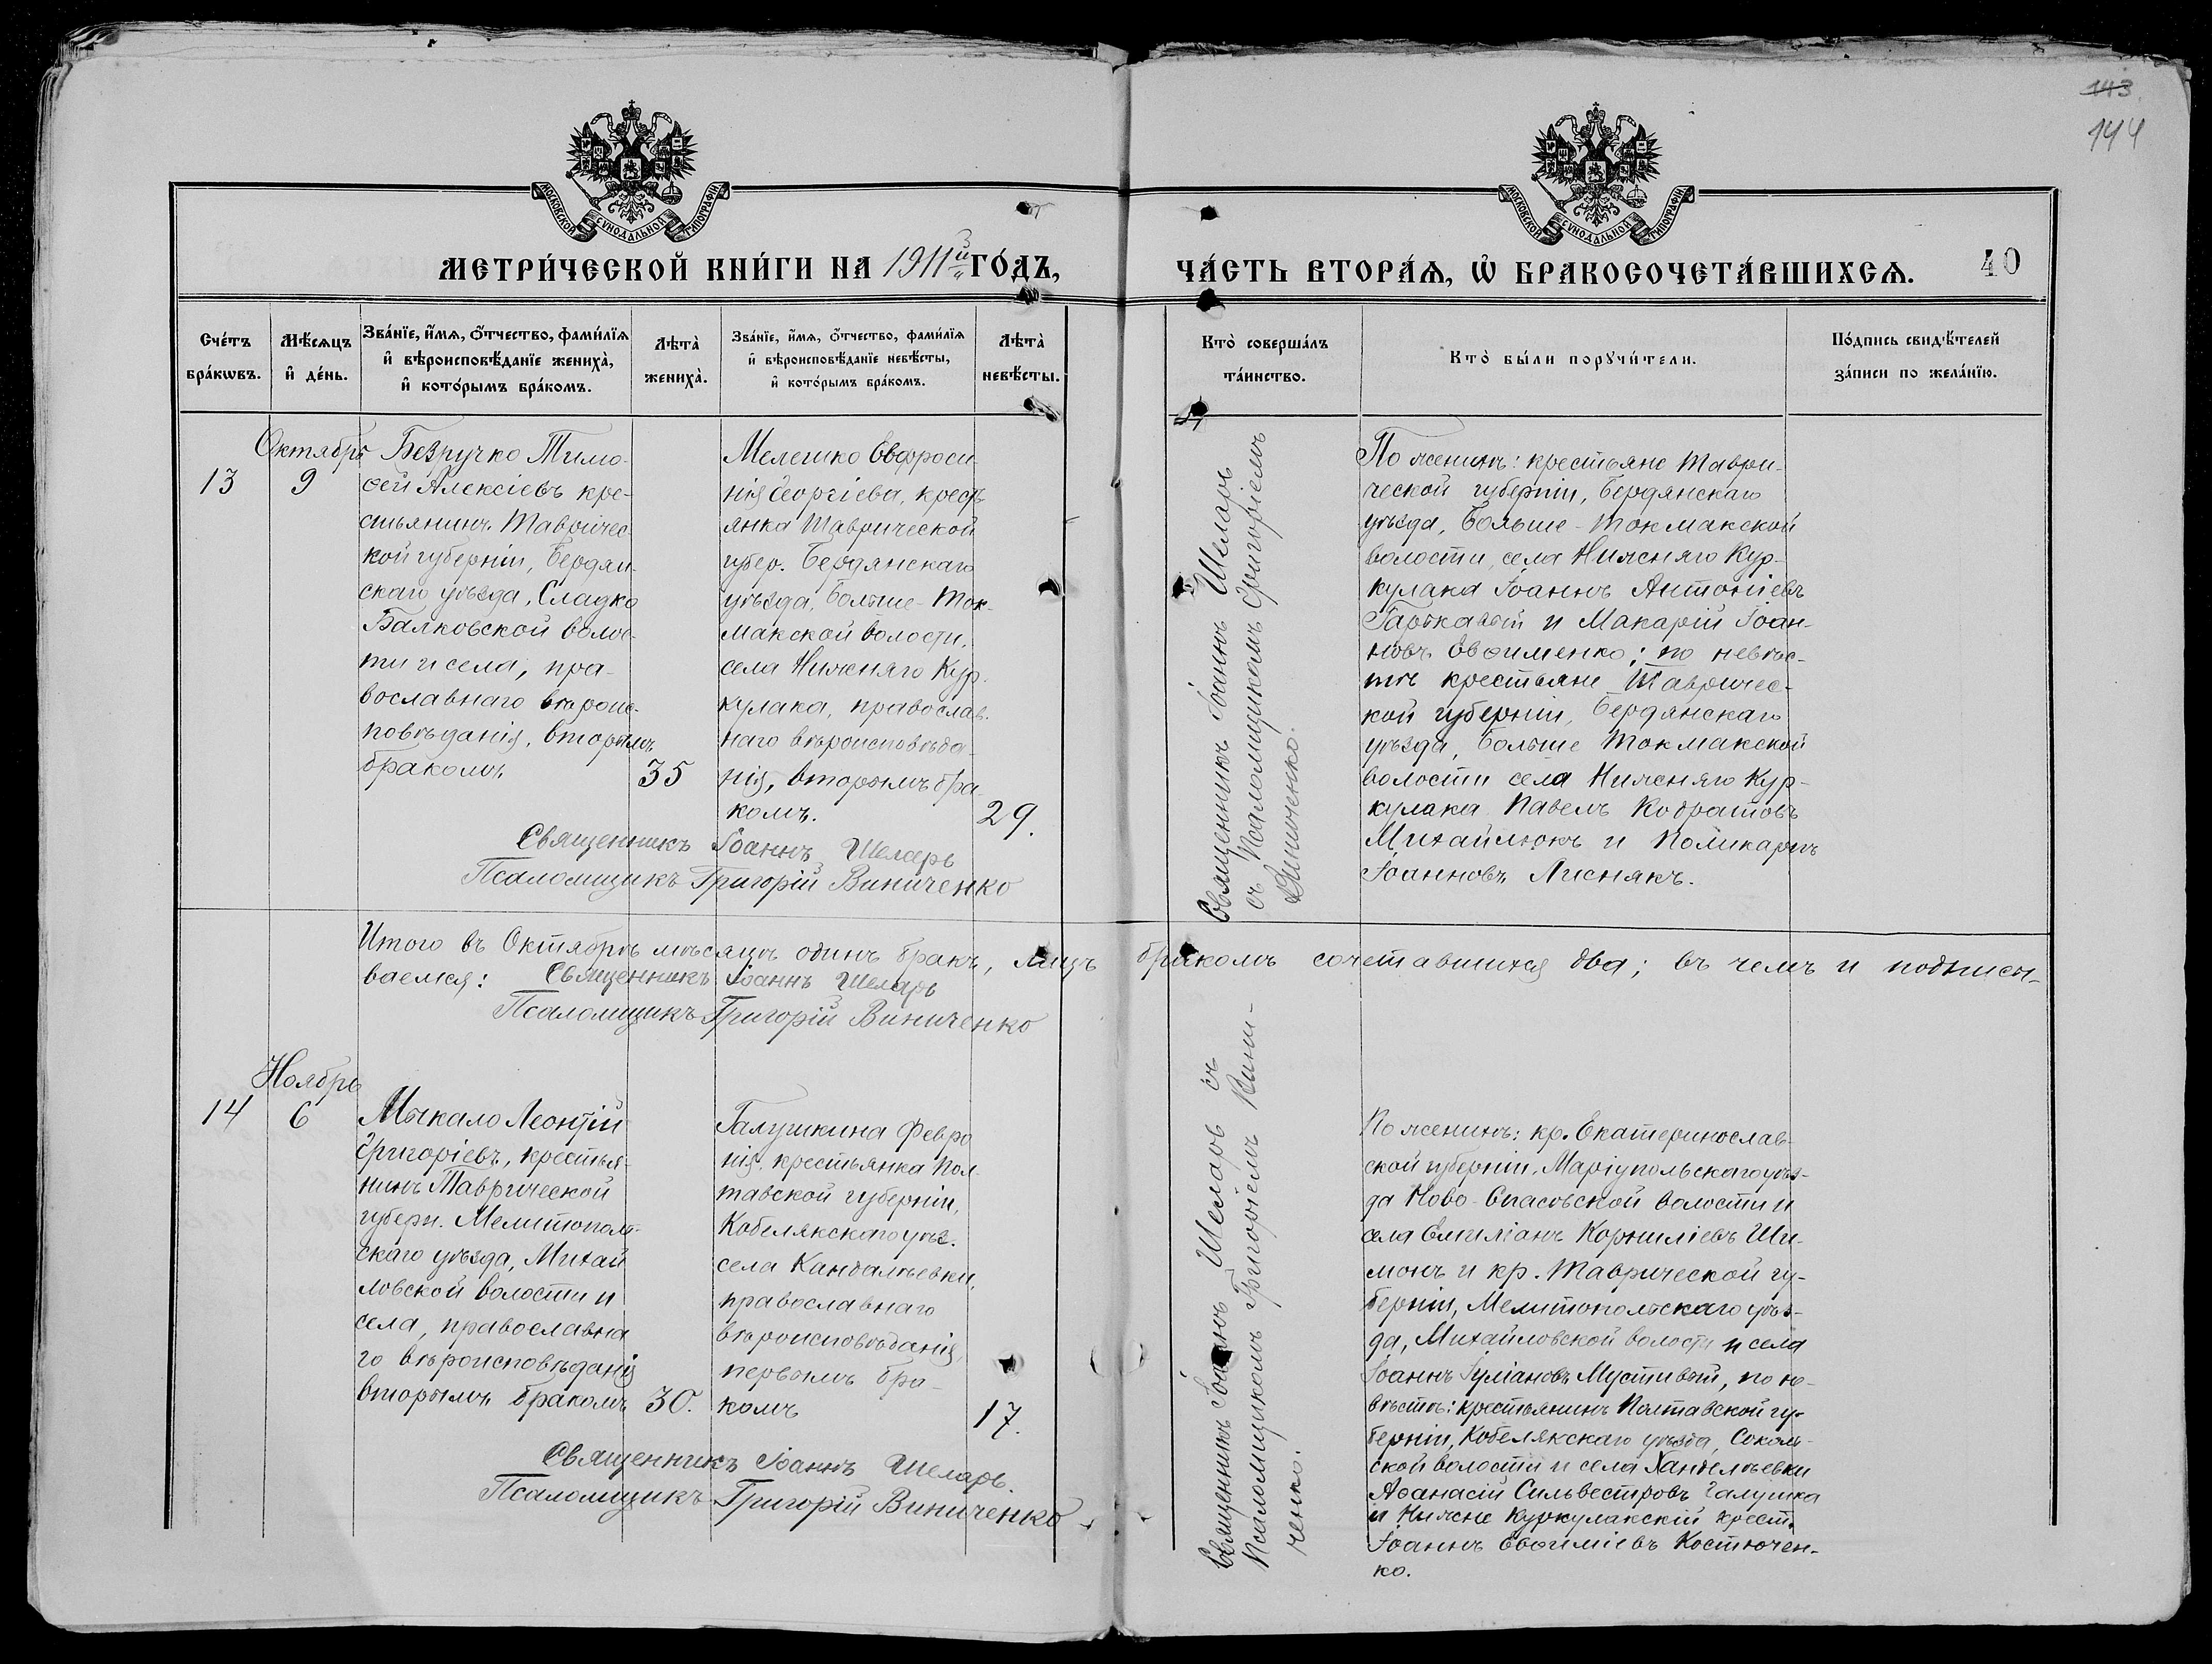 143
144
МОСКОВСКОЙ СУНОДАЛЬНОЙ ТИПОГРАФІИ
МОСКОВСКОЙ СУНОДАЛЬНОЙ ТИПОГРАФІИ
МЕТРИ́ЧЕСКОЙ КНИ́ГИ НА 1911й ГО́ДЪ,
ЧА́СТЬ ВТОРА́Ѧ, Ѽ БРАКОСОЧЕТА́ВШИХСѦ.
40
Сче́тъ
бра́кѡвъ.
Мѣ́сѧцъ
и҆ де́нь.
Зва́нїе, и҆́мѧ, ѻ҆́тчество, фами́лїѧ
и҆ вѣроисповѣ́данїе жениха̀,
и҆ кото́рымъ бра́комъ.
Лѣта̀
жениха̀.
Зва́нїе, и҆́мѧ, ѻ҆́тчество, фами́лїѧ
и҆ вѣроисповѣ́данїе невѣ́сты,
и҆ кото́рымъ бра́комъ.
Лѣта̀
невѣ́сты.
Кто̀ соверша́лъ
та́инство.
Кто̀ бы́ли порꙋчи́тели.
По́дпись свидѣ́телей
за́писи по жела́нїю.
Октябрь
13
9
Безручко Тимо-
ѳей Алексіевъ кре-
стьянинъ Тавричес-
кой губерніи, Бердян-
скаго уѣзда, Сладко
Балковской волос-
ти и села, пра-
вославнаго вѣроис-
повѣданія, вторымъ
бракомъ
35
Мелешко Евфроси-
нія Георгіева, кресть
янка Таврической
губер. Бердянскаго
уѣзда, Больше-Ток-
макской волости,
села Нижняго Кур-
кулака, православ-
наго вѣроисповѣда-
нія, вторымъ бра-
комъ.
29.
Священникъ Іоаннъ Шеларь
Псаломщикъ Григорій Виниченко
Священникъ Іоаннъ Шеларь
съ Псаломщикомъ Григоріемъ
Виниченко.
По женихѣ: крестьяне Таври-
ческой губерніи, Бердянскаго
уѣзда, Больше-Токмакской
волости, села Нижняго Кур-
кулака Іоаннъ Антоніевъ
и Макарій Іоан-
новъ Евѳименко; по невѣс-
тѣ крестьяне Тавричес-
кой губерніи, Бердянскаго
уѣзда, Больше Токмакской
волости села Нижняго Кур-
кулака Павелъ Кодратовъ
Михайлюкъ и Поликарпъ
Іоанновъ Лиснякъ.
Итого въ Октябрѣ мѣсяцѣ одинъ бракъ, лицъ бракомъ сочетавшихся два; въ чемъ и подписы-
ваемся: Священникъ Іоаннъ Шеларь
Псаломщикъ Григорій Виниченко
Ноябрь
14
6
Мыкало Леонтій
Григоріевъ, крестья-
нинъ Таврической
губерн. Мелитополь-
скаго уѣзда, Михай
ловской волости и
села, православна
го вѣроисповѣданія
вторымъ бракомъ
30.
Галушкина Февро
нія, крестьянка Пол-
тавской губерніи,
Кобелякскаго уѣз.
села Кандалѣевки,
православнаго
вѣроисповѣданія,
первымъ бра-
комъ
17.
Священникъ Іоаннъ Шеларь.
Псаломщикъ Григорій Виниченко
Священникъ Іоаннъ Шеларь съ
Псаломщикомъ Григоріемъ Вини-
ченко.
По женихѣ: кр. Екатеринослав-
ской губерніи, Маріупольскаго уѣз-
да Ново-Спасовской волости и
села Емиліанъ Корниліевъ Ши-
монъ и кр. Таврической гу-
берніи, Мелитопольскаго уѣз-
да, Михайловской волости и села
Іоаннъ Іуліановъ Мустивый, по не-
вѣстѣ: крестьянинъ Полтавской гу-
берніи, Кобелякскаго уѣзда, Соколь-
ской волости и села Ханделѣевки
Аѳанасій Сильвестровъ Галушка
и Нижне Куркулакскій крест.
Іоаннъ Евѳиміевъ Костючен-
ко.